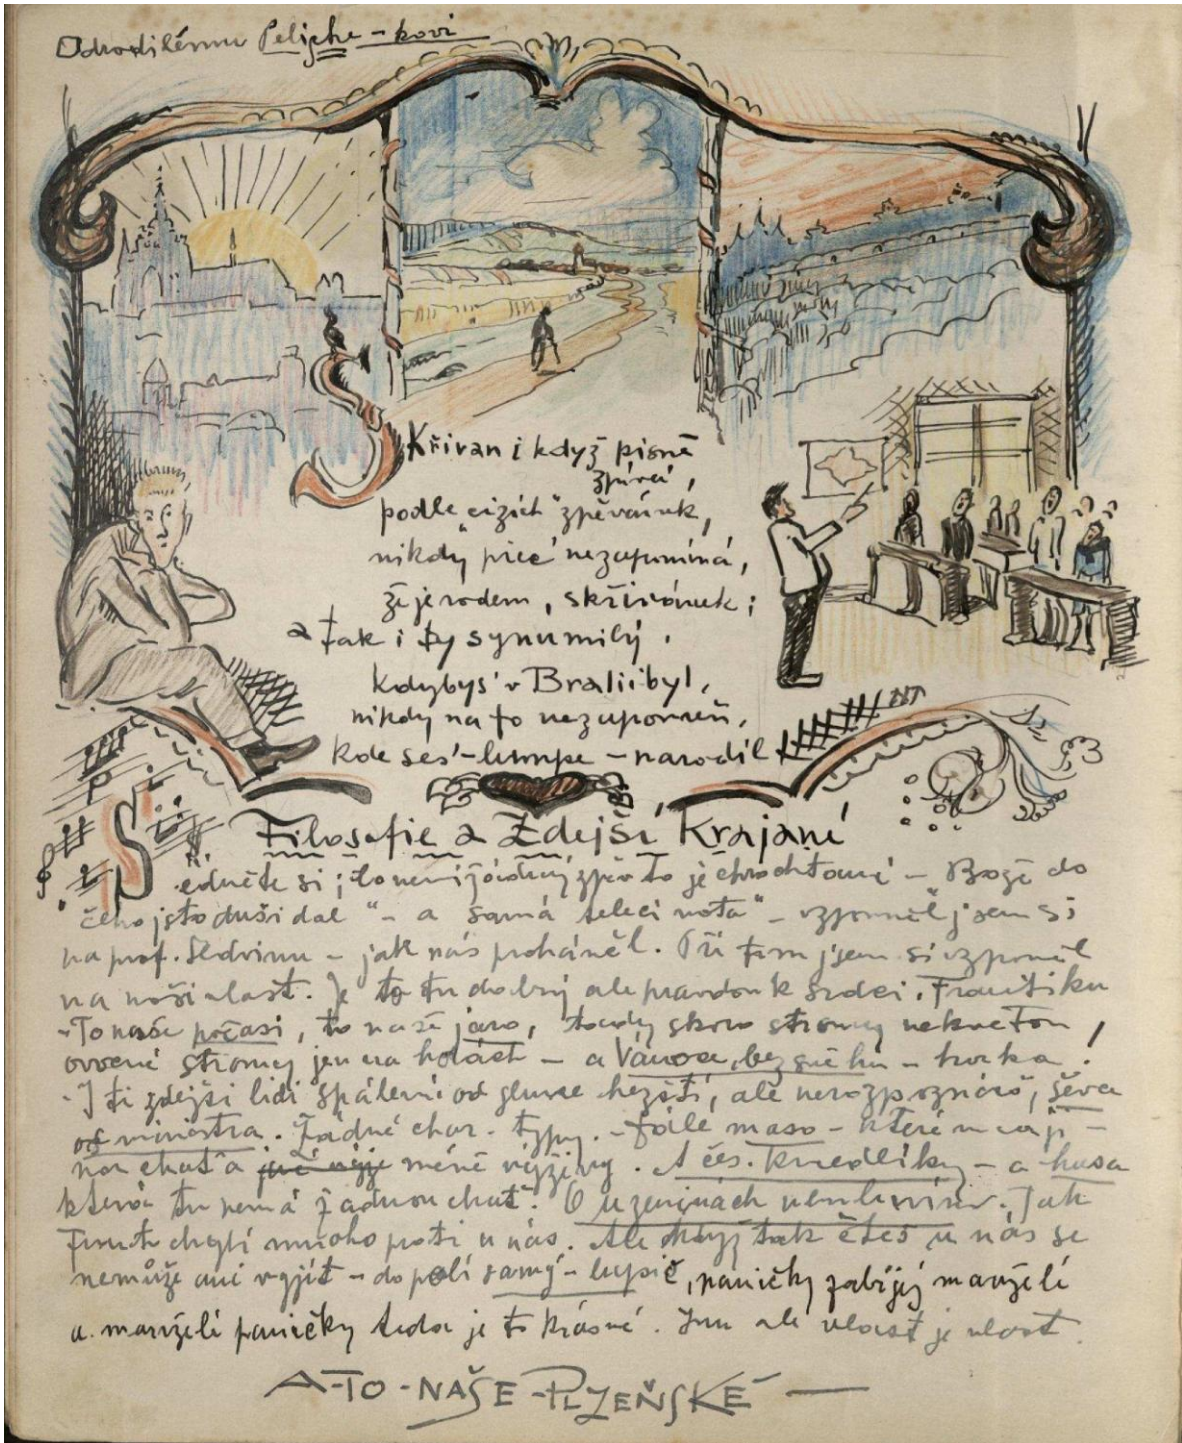 Odrodilému Pelishe-kovi
Skřivan i když písně
zpívá,
podle "cizích" zpěvánek,
nikdy přec nezapomíná,
že je rodem, skřivánek;
a tak i ty synu milý,
kdybys' v Brasilii byl,
nikdy na to nezapomeň,
kde ses' - lumpe - narodil
Filosofie a Zdejší Krajané
Sedněte si; to není žádný zpěv to je chrochtání - Bože do
čeho jsto duši dal" - a samá telecí nota" - vzpomněl jsem si
na prof. Sedvinu - jak nás proháněl. Při tom jsem si vzpomněl
na naši vlast. Je to tu dobrý ale pravdou k srdci, Františku
- To naše počasí, to naše jaro, tady skoro stromy nekvetou,
ovocné stromy jen na holách - a Vánoce, bez sněhu - horka!
- I ti zdejší lidi spálení od slunce hezčí, ale nerozpoznáš, ševce
od ministra. Žádné char. typy. - Dále maso - které nemá
chuť a méně výživný. A čes. knedlíky - a husa
která tu nemá žádnou chuť. O uzeninách nemluvím. Tak
tu chybí mnoho proti u nás. Ale když tak čteš u nás se
nemůže ani vyjít - do polí samý - lupič, paničky zabíjej manželé
a. manželé paničky teda je to krásné. Inu ale vlast je vlast.
A-TO-NAŠE-PLZEŇSKÉ -